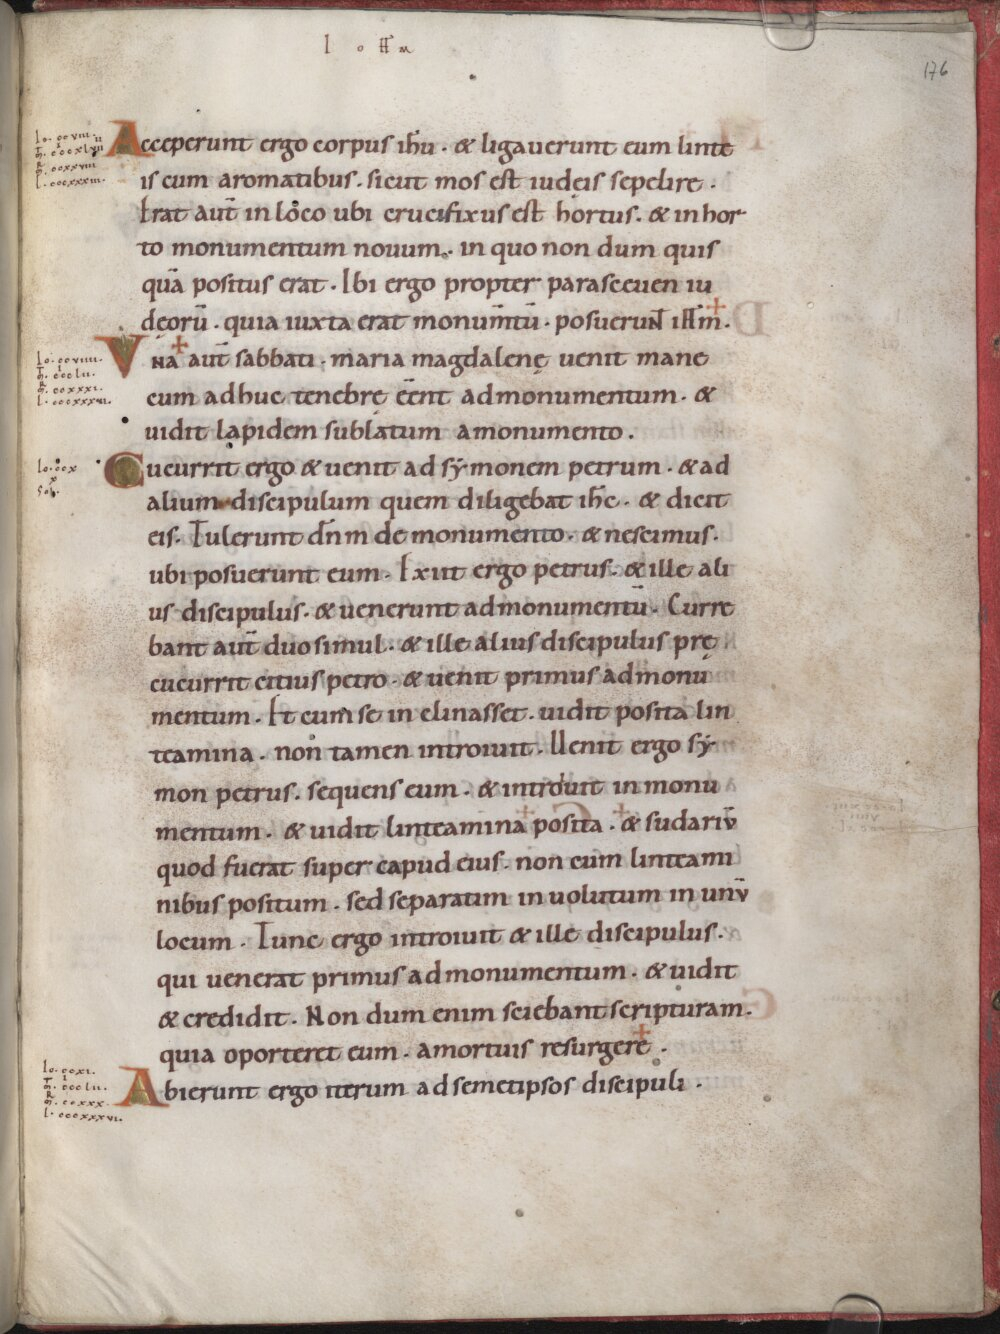 I o HAN
176
Acceperunt ergo corpus ihu · & ligauerunt eum linte
is cum aromatibus · sicut mos est iudeis sepelire ·
Erat aut̄ in loco ubi crucifixus est hortus · & in hor
to monumentum nouum · in quo non dum quis
quā positus erat · Ibi ergo propter parasceuen iu
dęorū · quia iuxta erat monumtū · posuerunt ihm ·
Vna aut̄ sabbati · maria magdalenę uenit mane
cum adhuc tenebrę eēnt ad monumentum · &
uidit lapidem sublatum a monumento ·
Cucurrit ergo & uenit ad sẏmonem petrum · & ad
alium discipulum quem diligebat ihc · & dicit
eis · Tulerunt dn̄m de monumento · & nescimus ·
ubi posuerunt eum · Exiit ergo petrus · & ille ali
us discipulus · & uenerunt ad monumentū · Curre
bant aut̄ duo simul · & ille alius discipulus prę
cucurrit citius petro · & uenit primus ad monu
mentum · Et cum se inclinasset · uidit posita lin
teamina · non tamen introiuit · Uenit ergo sẏ
mon petrus · sequens eum · & introiuit in monu
mentum · & uidit linteamina posita · & sudariū
quod fuerat super capud eius · non cum linteami
nibus positum · sed separatim inuolutum in unū
locum · Tunc ergo introiuit & ille discipulus ·
qui uenerat primus ad monumentum · & uidit
& credidit · Non dum enim sciebant scripturam ·
quia oporteret eum · a mortuis resurgere ·
Abierunt ergo iterum ad semetipsos discipuli ·
Io · ccviii ·
l · cccxxxiii ·
Io · ccviiii ·
m · ccclii ·
m · ccxxxi ·
l · cccxxxvi ·
Io · ccx
x
sol ·
Io · ccxi ·
m · ccclii ·
m · ccxxx ·
l · cccxxxvi ·